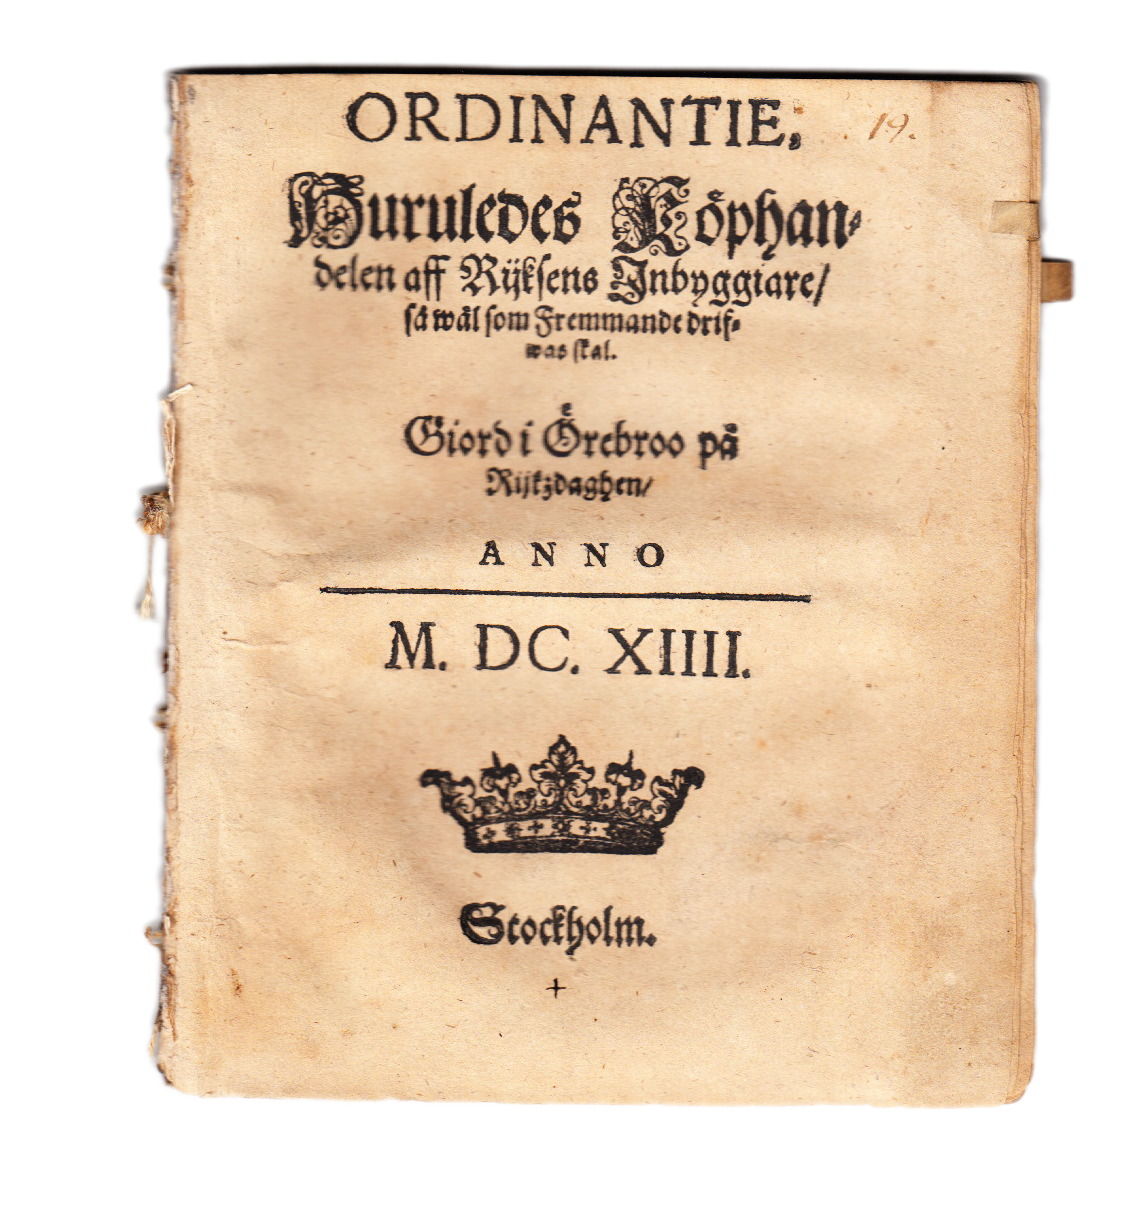 ORDINANTIE,
19.
Huruledes Köphan-
delen aff Rijksens Inbyggiare/
så wäl som Fremmande drif-
was skal.
Giord i Örebroo på
Rijkzdaghen/
ANNO
M. DC. XIIII.
Stockholm.
+